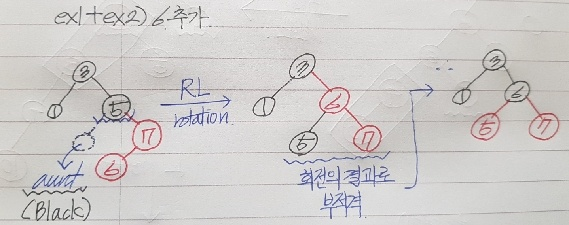 ex1+ex2) 6 추가
3
1
5
7
6
aunt
(Black)
RL
rotation
3
1
6
5
7
회전의 결과로
부적격
3
1
6
5
7